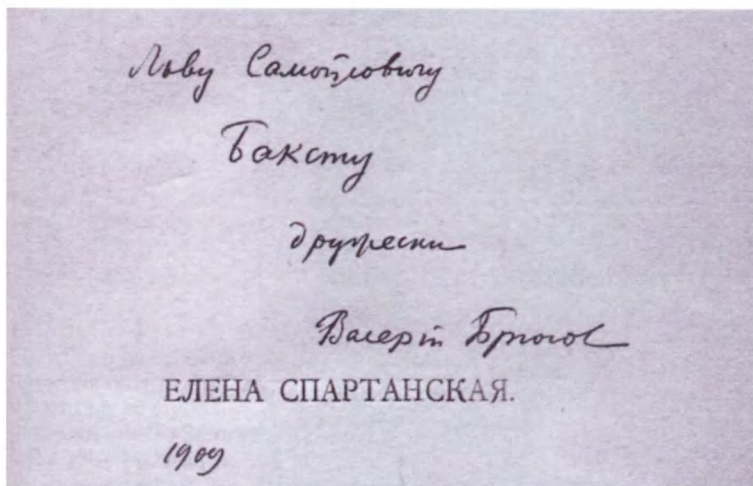 Льву Самойловичу
Баксту
дружески
Валерій Брюсов
ЕЛЕНА СПАРТАНСКАЯ.
1909